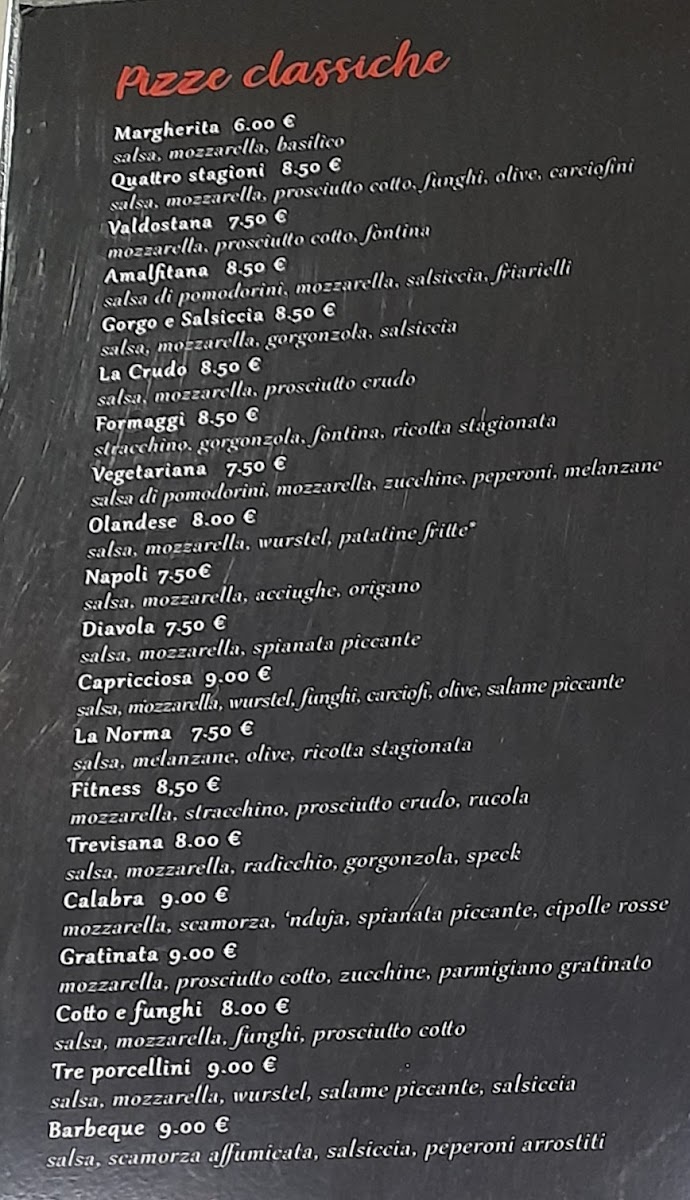 Pizze classiche
Margherita 6.00 €
salsa, mozzarella, basilico
Quattro stagioni 8.50 €
salsa, mozzarella, prosciutto cotto, funghi, olive, carciofini
Valdostana 7.50 €
mozzarella, prosciutto cotto, fontina
Amalfitana 8.50 €
salsa di pomodorini, mozzarella, salsiccia, friarielli
Gorgo e Salsiccia 8.50 €
salsa, mozzarella, gorgonzola, salsiccia
La Crudo 8.50 €
salsa, mozzarella, prosciutto crudo
Formaggi 8.50 €
stracchino, gorgonzola, fontina, ricotta stagionata
Vegetariana 7.50 €
salsa di pomodorini, mozzarella, zucchine, peperoni, melanzane
Olandese 8.00 €
salsa, mozzarella, wurstel, patatine fritte*
Napoli 7.50€
salsa, mozzarella, acciughe, origano
Diavola 7.50 €
salsa, mozzarella, spianata piccante
Capricciosa 9.00 €
salsa, mozzarella, wurstel, funghi, carciofi, olive, salame piccante
La Norma 7.50 €
salsa, melanzane, olive, ricotta stagionata
Fitness 8,50 €
mozzarella, stracchino, prosciutto crudo, rucola
Trevisana 8.00 €
salsa, mozzarella, radicchio, gorgonzola, speck
Calabra 9.00 €
mozzarella, scamorza, ‘nduja, spianata piccante, cipolle rosse
Gratinata 9.00 €
mozzarella, prosciutto cotto, zucchine, parmigiano gratinato
Cotto e funghi 8.00 €
salsa, mozzarella, funghi, prosciutto cotto
Tre porcellini 9.00 €
salsa, mozzarella, wurstel, salame piccante, salsiccia
Barbeque 9.00 €
salsa, scamorza affumicata, salsiccia, peperoni arrostiti